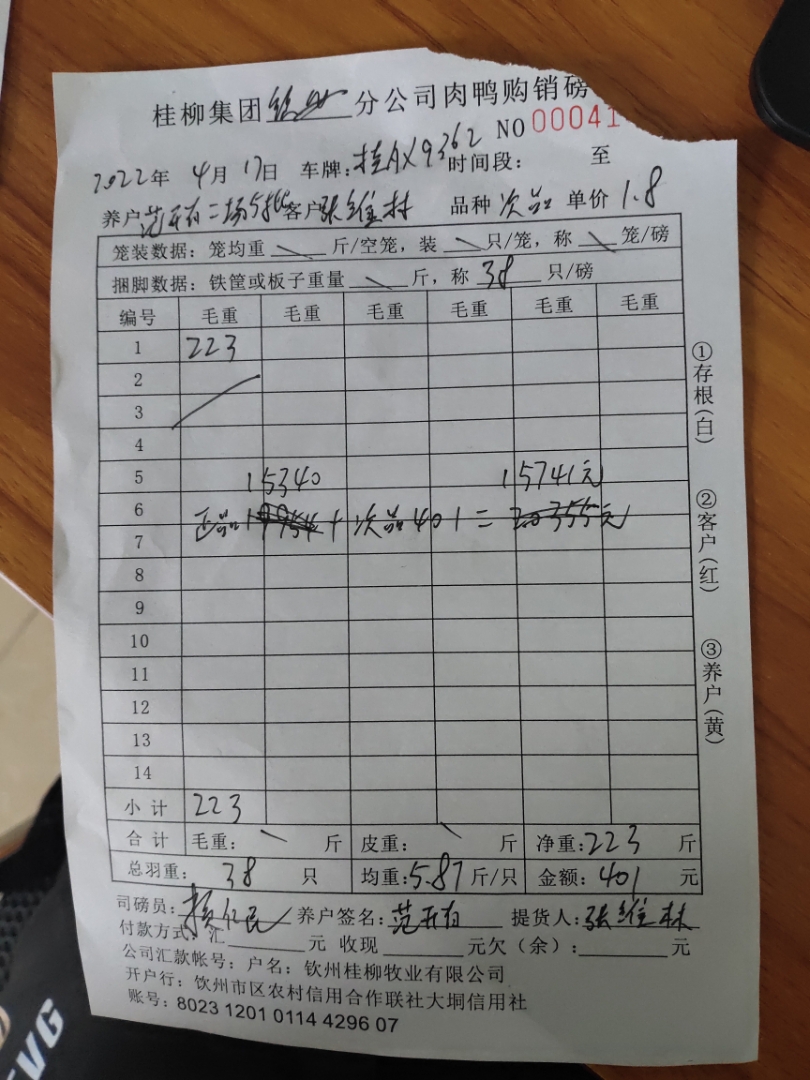 桂柳集团钦州分公司肉鸭购销磅
NO 00041
2022年 4月17日 车牌:桂AX9362 时间段: 至
养户范开有二场5批客户张维林 品种 次品 单价 1.8
笼装数据:笼均重 \ 斤/空笼,装 \ 只/笼,称 \ 笼/磅
捆脚数据:铁筐或板子重量 \ 斤,称 38 只/磅
编号 毛重 毛重 毛重 毛重 毛重 毛重
1 223
2
3
4
5 15340 15741元
6
正品 + 次品401=
7
8
9
10
11
12
13
14
小计 223
合计 毛重: \ 斤 皮重: \ 斤 净重:223 斤
总羽重: 38 只 均重:5.87斤/只 金额:401 元
司磅员: 养户签名:范开有 提货人:张维林
付款方式:汇 元 收现 元欠(余): 元
公司汇款帐号:户名:钦州桂柳牧业有限公司
开户行:钦州市区农村信用合作联社大垌信用社
账号:8023 1201 0114 4296 07
①存根(白)
②客户(红)
③养户(黄)
EVG